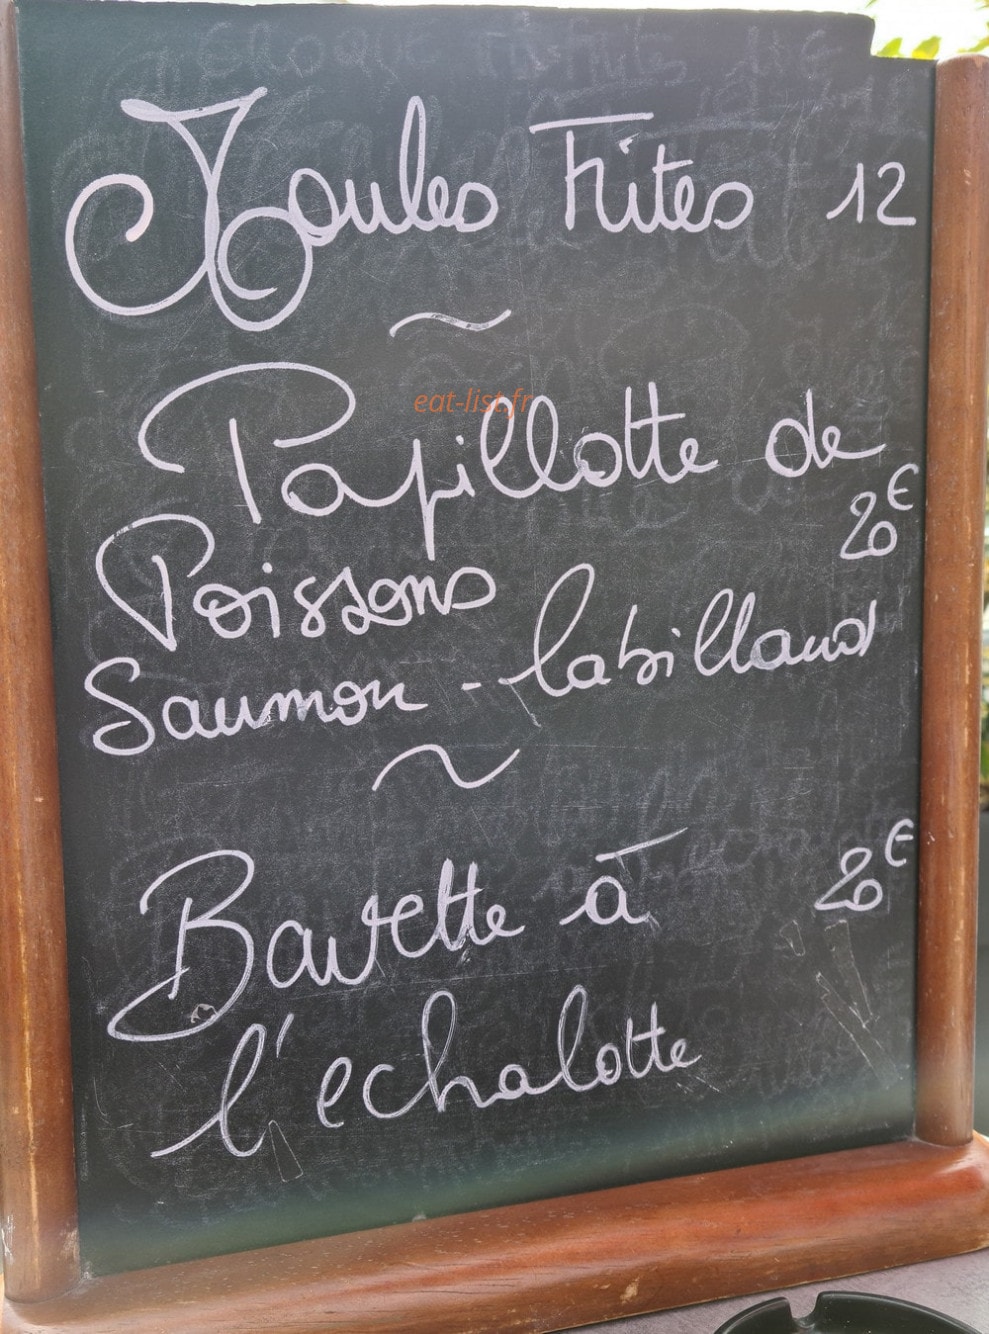 Moules Frites 12
~
eat-list.fr
Papillotte de
20€
Poissons
Saumon - Cabillaud
~
Bavette à 20€
l'echalotte